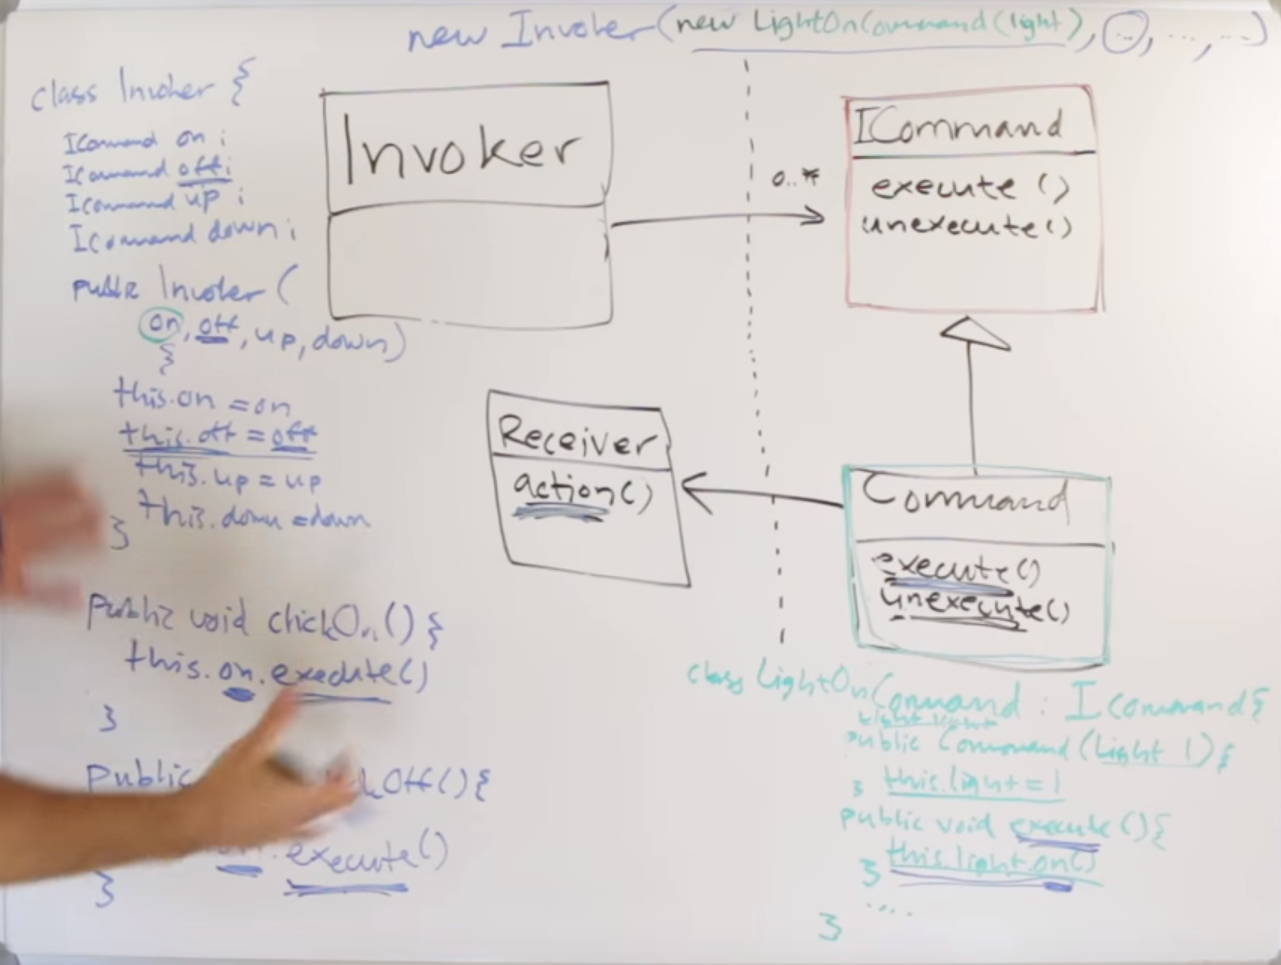 new Invoker(new LightOnCommand(light), ..., ..., ...)
class Invoker {
ICommand on;
ICommand off;
ICommand up;
ICommand down;
public Invoker(
on, off, up, down)
{
this.on = on
this.off = off
this.up = up
this.down = down
}
public void clickOn() {
this.on.execute()
}
public Off() {
.execute()
}
Invoker
0..*
ICommand
execute()
unexecute()
Receiver
action()
Command
execute()
unexecute()
class LightOnCommand : ICommand {
Light light
public Command(Light l) {
this.light = l
}
public void execute() {
this.light.on()
}
....
}